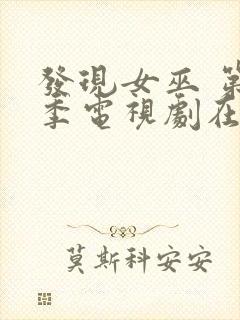 發現女巫 第
季電視劇在
莫斯科安安